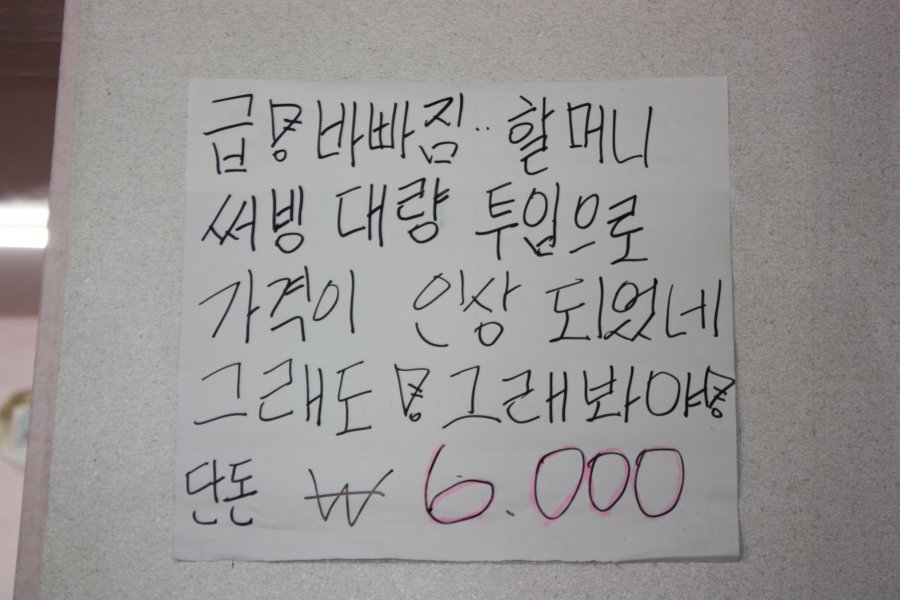 급 바빠짐.. 할머니
써빙 대량 투입으로
가격이 인상 되었네
그래도 그래봐야
단돈 ₩ 6.000